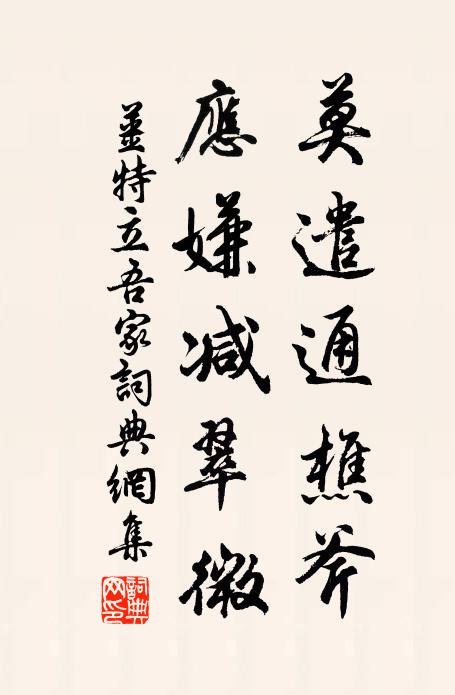 莫遣通樵斧
應嫌减翠微
姜特立吾家詞典網集
詞典網印